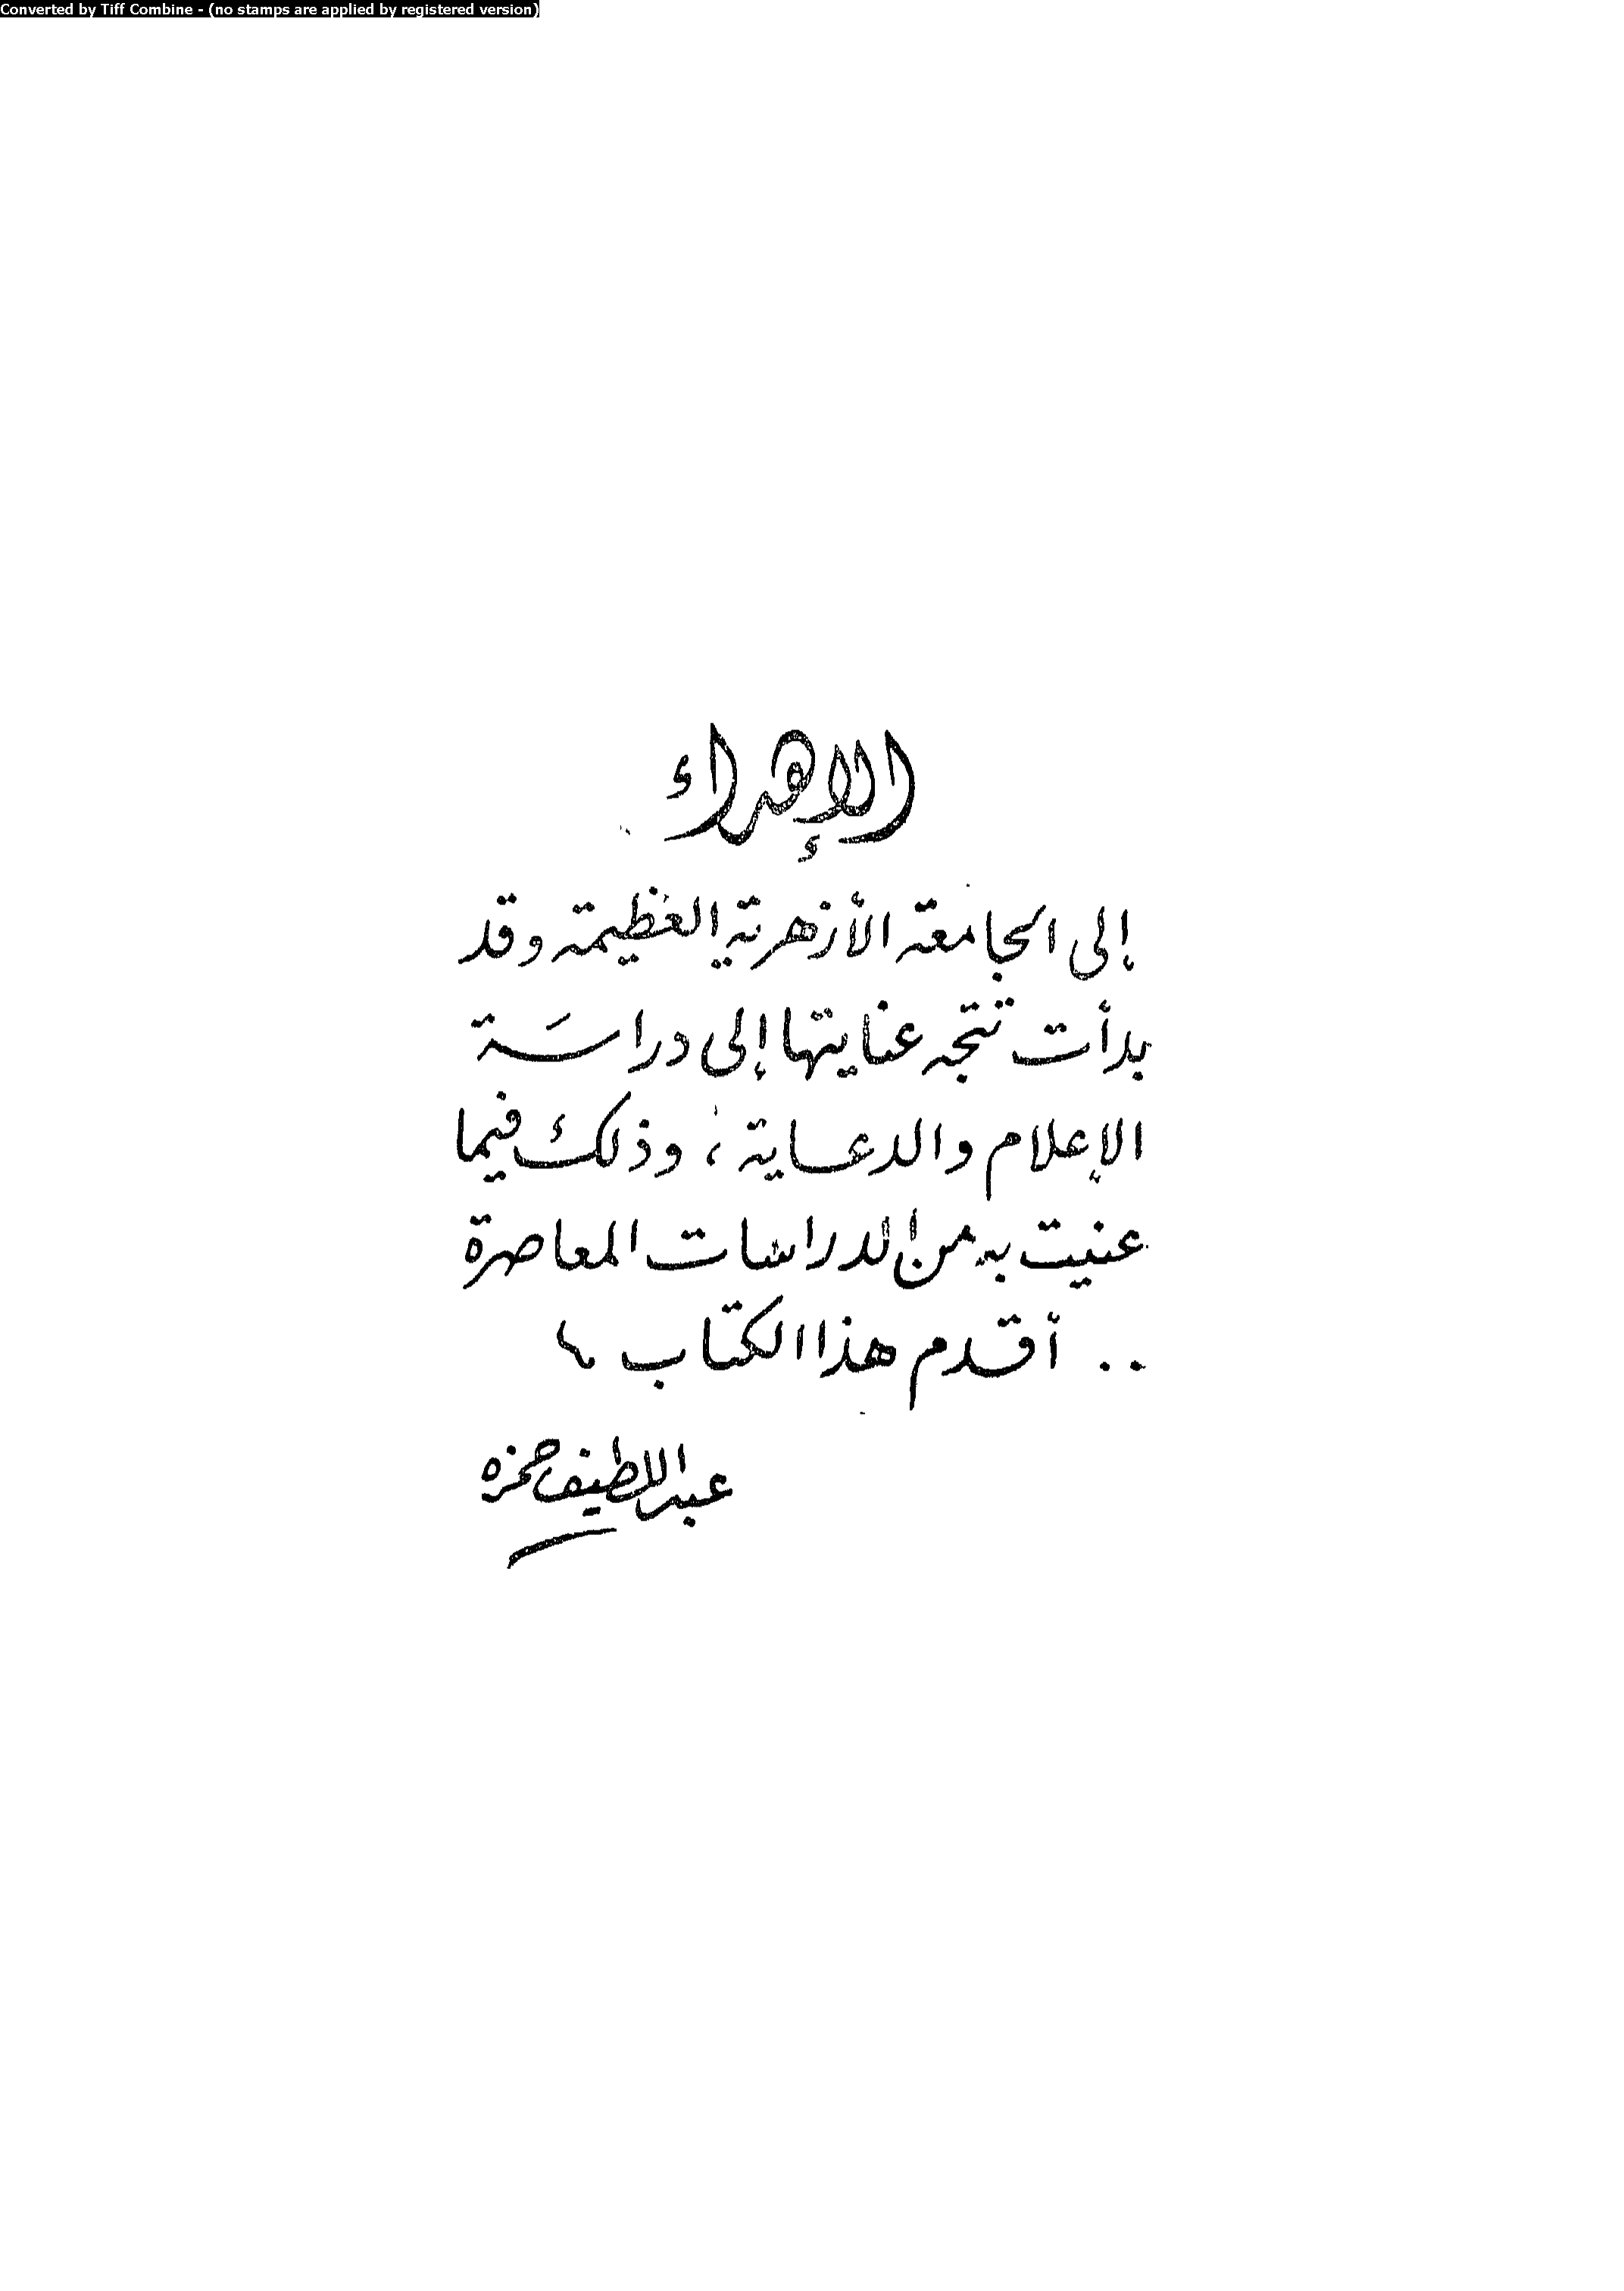 Converted by Tiff Combine - (no stamps are applied by registered version)
الإهداء
إلى الجامعة الأزهرية العظيمة وقد
بدأت تتجه عنايتها إلى دراسَة
الإعلام والدعاية ، وذلك فيما
عنيت به من الدراسات المعاصرة
.. أقدم هذا الكتاب
عبد اللطيف حمزه